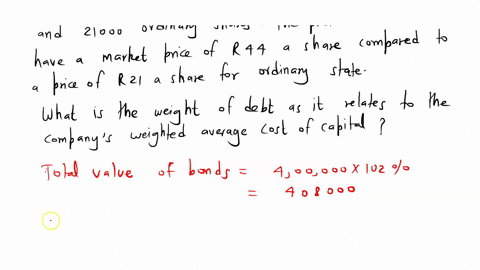 and 21000 ordinary
have a market price of R44 a share compared to
a price of R21 a share for ordinary state.
What is the weight of debt as it relates to the
company's weighted average cost of capital ?
Total value of bonds = 4,00,000 x 102 %
= 408000